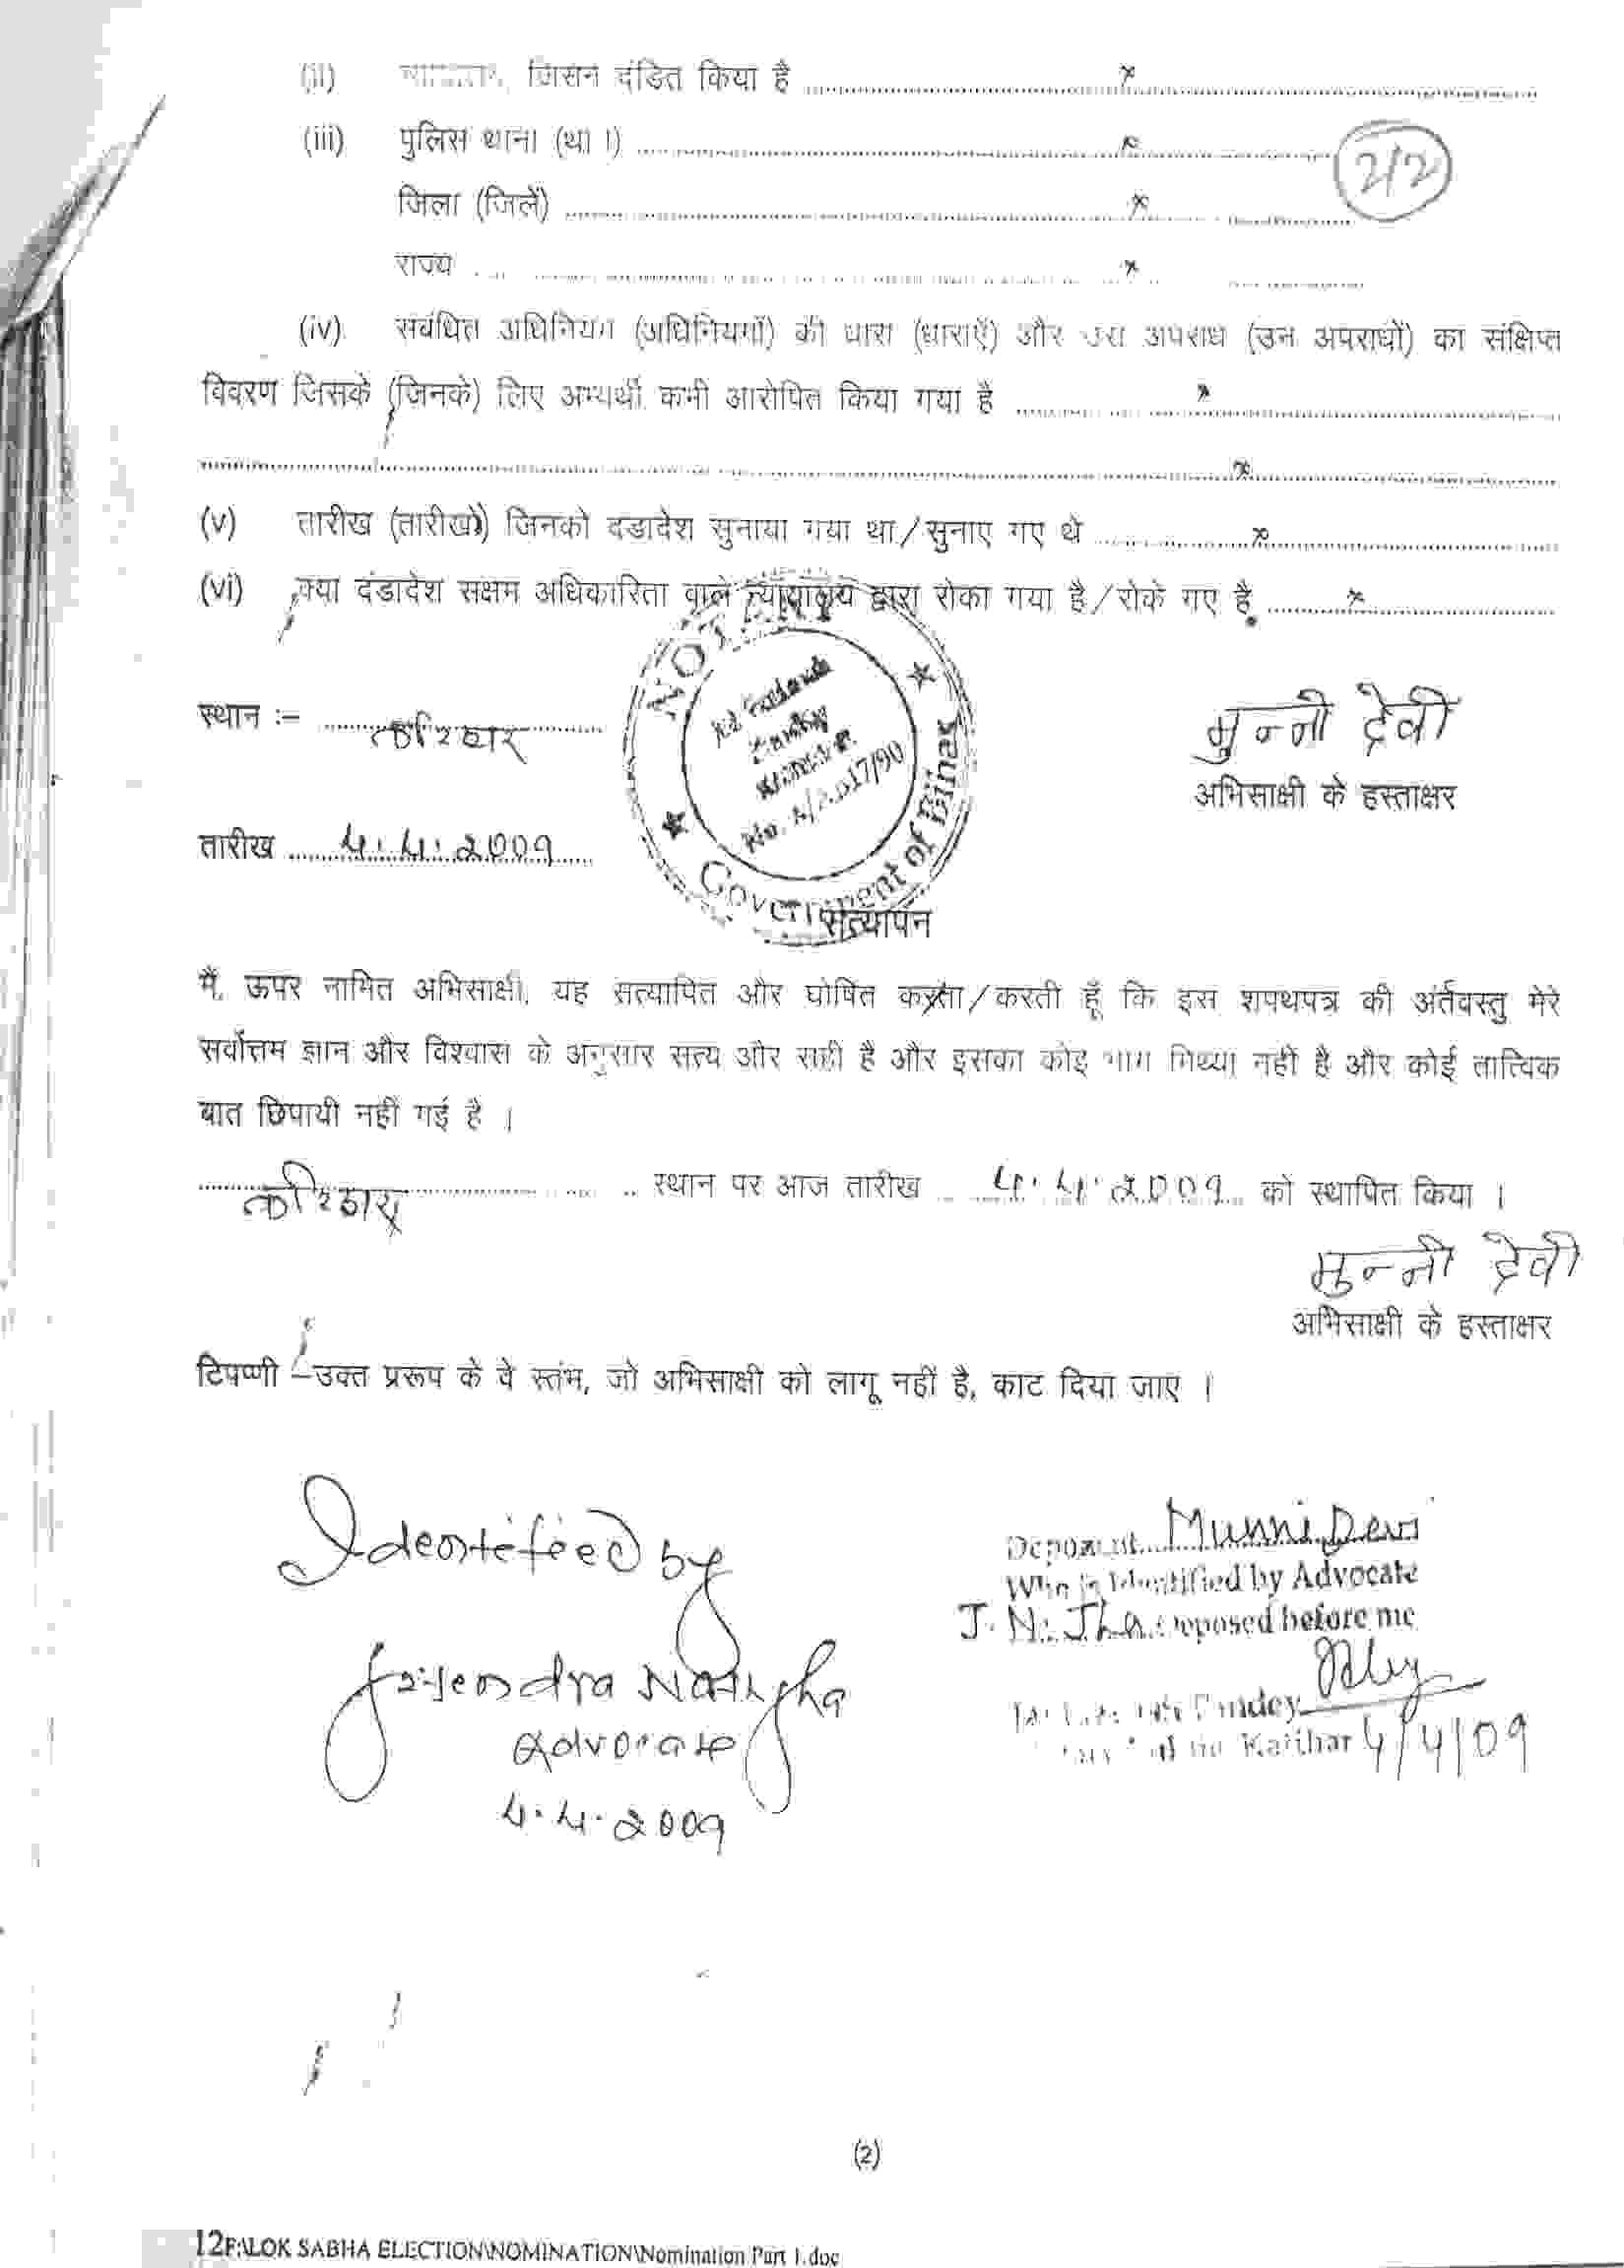 (ii) जिसने दंडित किया है ........ x
(iii) पुलिस थाना (था।) ........ x
2/2
जिला (जिलें) ........ x
राज्य ........ x
(iv). संबंधित अधिनियम (अधिनियमों) की धारा (धाराएँ) और उस अपराध (उन अपराधों) का संक्षिप्त
विवरण जिसके (जिनके) लिए अभ्यर्थी कभी आरोपित किया गया है ........ x
........ x
(v) तारीख (तारीखों) जिनको दंडादेश सुनाया गया था/सुनाए गए थे ........ x
(vi) क्या दंडादेश सक्षम अधिकारिता वाले न्यायालय द्वारा रोका गया है/रोके गए है ........ x
NOTARY
Government of Bihar
स्थान :- कटिहार
मुन्नी देवी
अभिसाक्षी के हस्ताक्षर
तारीख 4.4.2009
सत्यापन
मैं, ऊपर नामित अभिसाक्षी, यह सत्यापित और घोषित करता/करती हूँ कि इस शपथपत्र की अंर्तवस्तु मेरे
सर्वोत्तम ज्ञान और विश्वास के अनुसार सत्य और सही है और इसका कोइ भाग मिथ्या नहीं है और कोई तात्त्विक
बात छिपायी नहीं गई है ।
कटिहार स्थान पर आज तारीख 4.4.2009 को स्थापित किया ।
मुन्नी देवी
अभिसाक्षी के हस्ताक्षर
टिपप्णी –उक्त प्ररूप के वे स्तंभ, जो अभिसाक्षी को लागू नहीं है, काट दिया जाए ।
Identified by
Jaiendra Nath Jha
Advocate
4.4.2009
Deponent Munni Devi
Who is Identified by Advocate
J. N. Jha Deposed before me
Pandey
Katihar 4/4/09
(2)
12F:\LOK SABHA ELECTION\NOMINATION\Nomination Part 1.doc